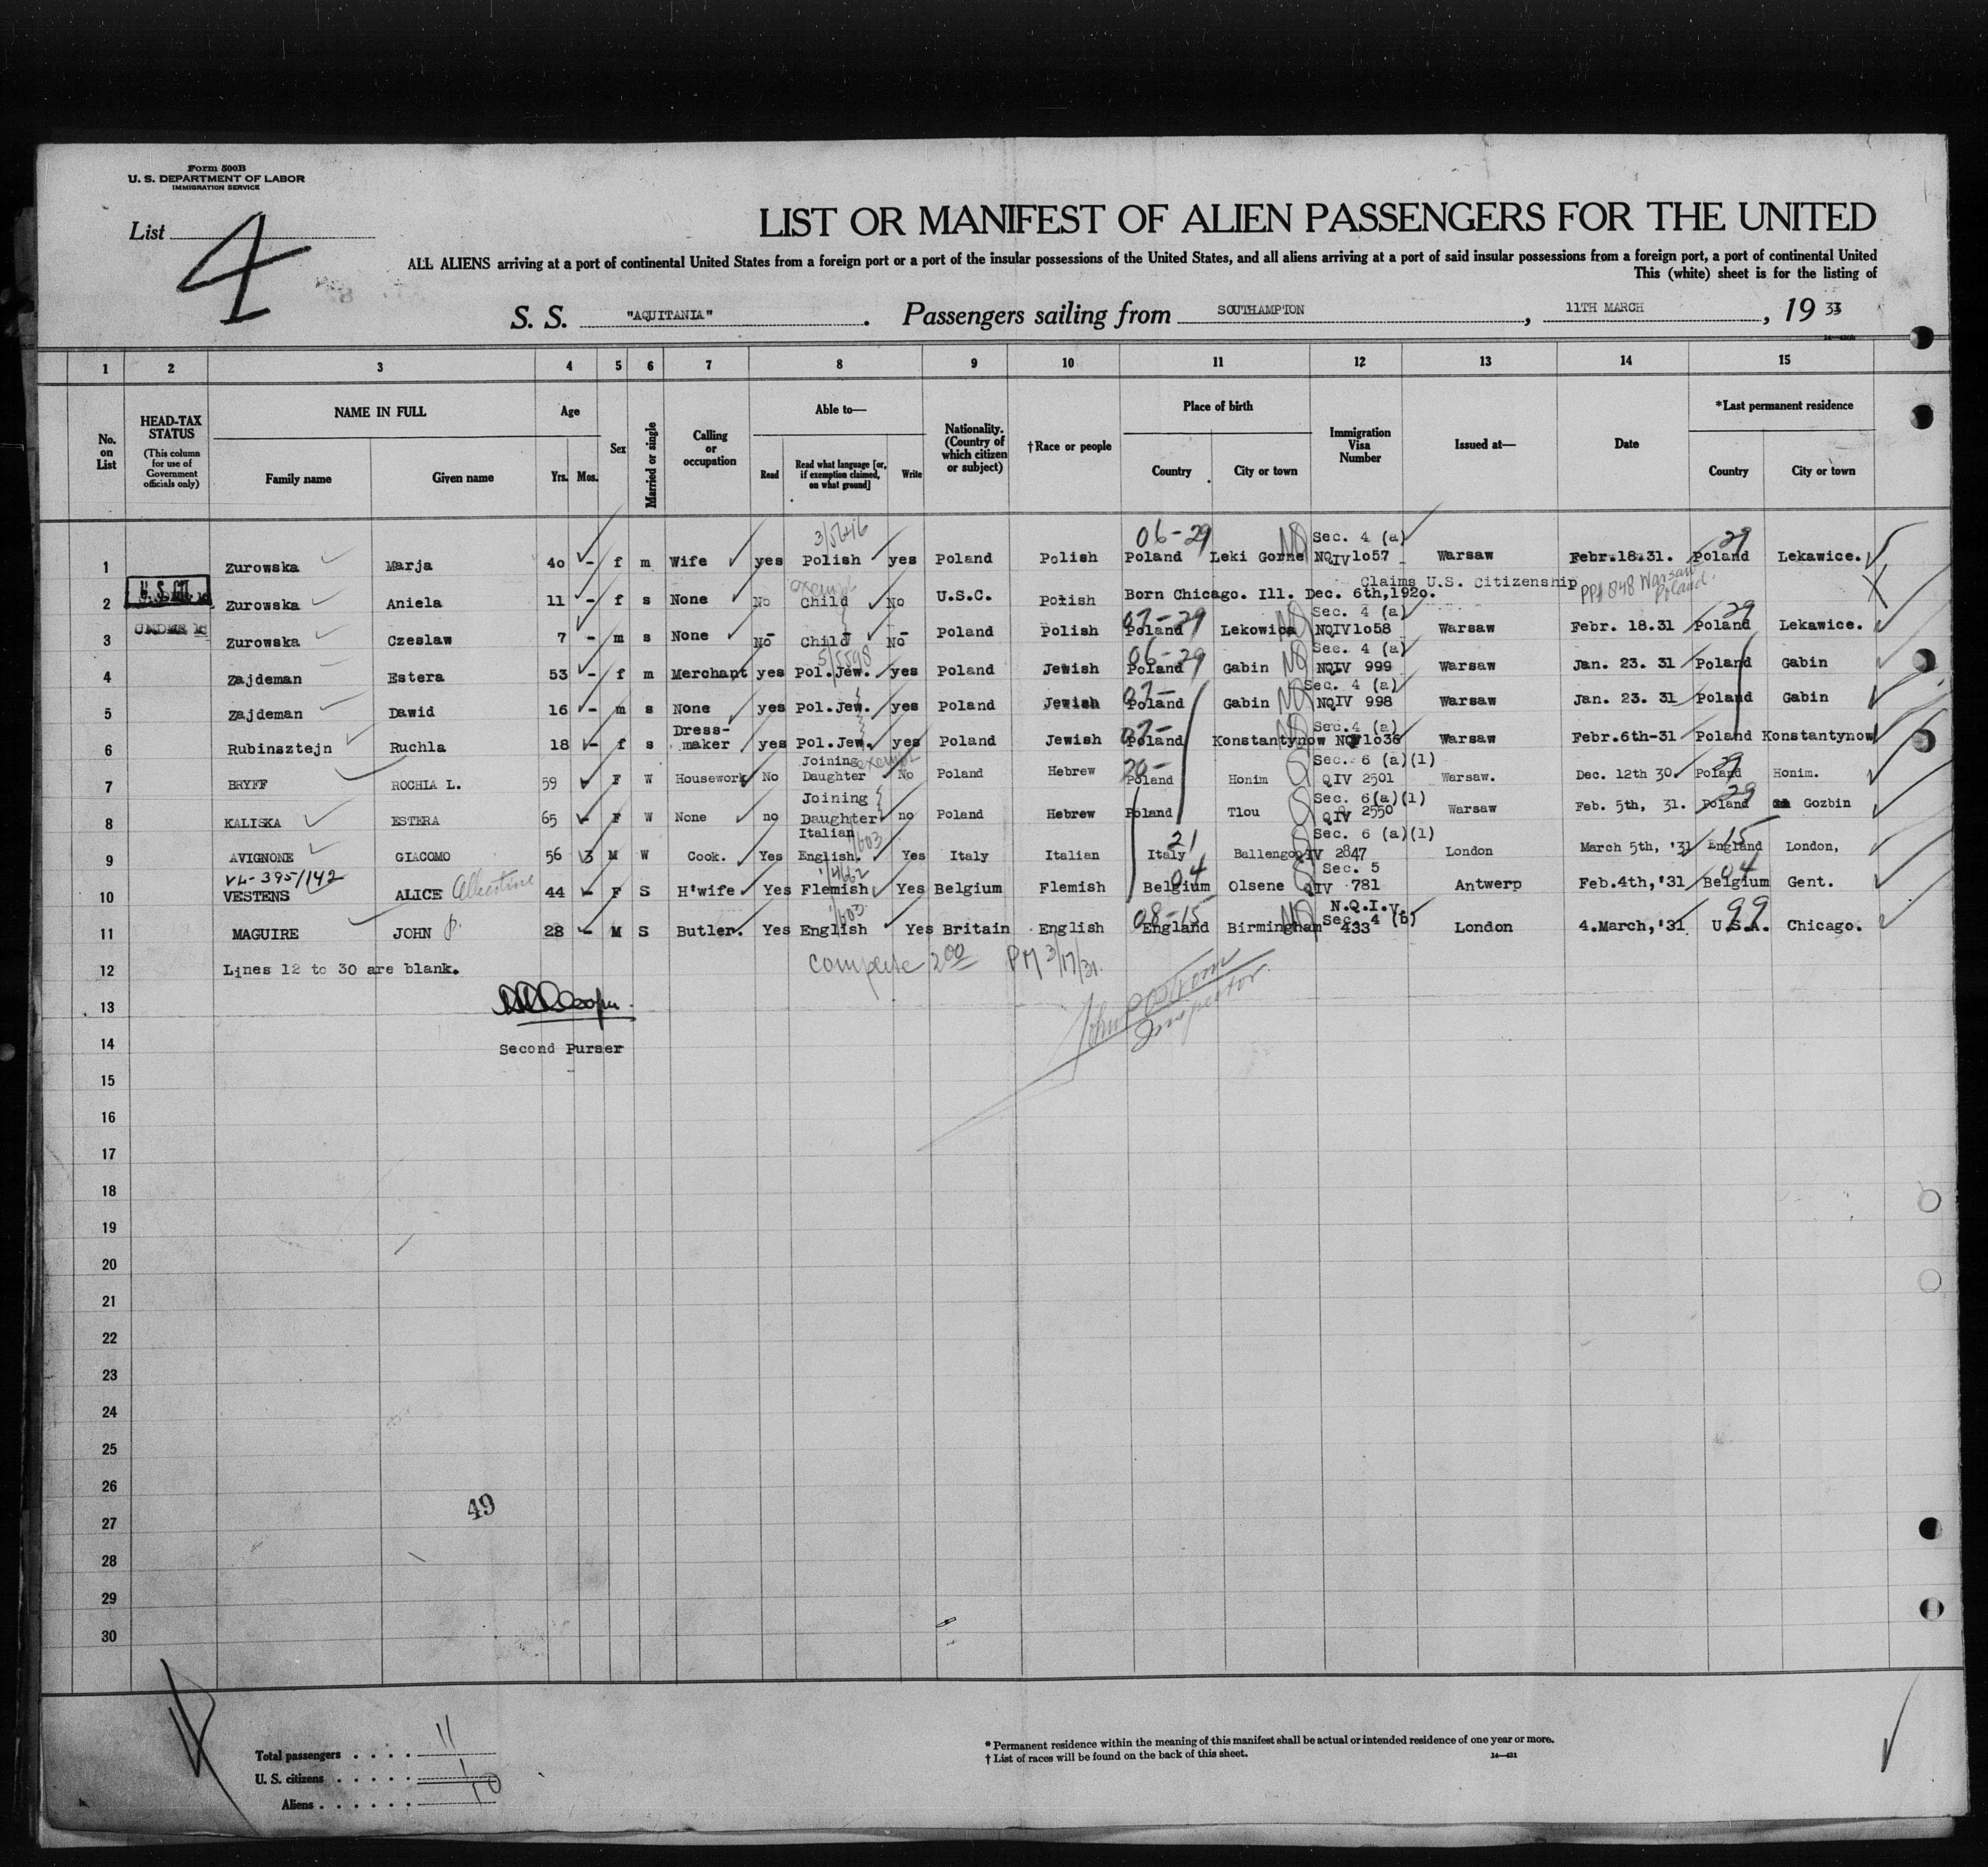 Form 500B
U. S. DEPARTMENT OF LABOR
IMMIGRATION SERVICE
List 4
LIST OR MANIFEST OF ALIEN PASSENGERS FOR THE UNITED
ALL ALIENS arriving at a port of continental United States from a foreign port or a port of the insular possessions of the United States, and all aliens arriving at a port of said insular possessions from a foreign port, a port of continental United
This (white) sheet is for the listing of
S. S. "AQUITANIA". Passengers sailing from SOUTHAMPTON, 11TH MARCH, 19 31
1 2 3 4 5 6 7 8 9 10 11 12 13 14 15
No. on List
HEAD-TAX STATUS (This column for use of Government officials only)
NAME IN FULL Family name Given name
Age Yrs. Mos.
Sex
Married or single
Calling or occupation
Able to— Read Read what language [or, if exemption claimed, on what ground] Write
Nationality. (Country of which citizen or subject)
†Race or people
Place of birth Country City or town
Immigration Visa Number
Issued at—
Date
*Last permanent residence Country City or town
3/5646 06-29 Sec. 4 (a) 29
1 Zurowska Marja 40 - f m Wife yes Polish yes Poland Polish Poland Leki Gorne NQ NQIV 1o57 Warsaw Febr.18.31. Poland Lekawice.
U.S. CIT. exempt Claims U.S. Citizenship PP# 848 Warsaw Poland.
2 Zurowska Aniela 11 - f s None No Child No U.S.C. Polish Born Chicago. Ill. Dec. 6th,192o.
UNDER 16 07-29 Sec. 4 (a) 29
3 Zurowska Czeslaw 7 - m s None No Child No Poland Polish Poland Lekowica NQ NQIV1o58 Warsaw Febr. 18.31 Poland Lekawice.
5/5598 06-29 Sec. 4 (a)
4 Zajdeman Estera 53 - f m Merchant yes Pol.Jew. yes Poland Jewish Poland Gabin NQ NQIV 999 Warsaw Jan. 23. 31 Poland Gabin
07- Sec. 4 (a)
5 Zajdeman Dawid 16 - m s None yes Pol.Jew. yes Poland Jewish Poland Gabin NQ NQIV 998 Warsaw Jan. 23. 31 Poland Gabin
07- Sec.4 (a)
6 Rubinsztejn Ruchla 18 - f s Dress-maker yes Pol.Jew. yes Poland Jewish Poland Konstantynow Warsaw Febr.6th-31 Poland Konstantynow
exempt 20- Sec. 6 (a)(1) 29
7 BRYFF ROCHLA L. 59 F W Housework No Joining Daughter No Poland Hebrew Poland Honim QIV 2501 Warsaw. Dec. 12th 30. Poland Honim.
Sec. 6(a)(1) 29
8 KALISKA ESTERA 65 - F W None no Joining Daughter no Poland Hebrew Poland Tlou QIV 2550 Warsaw Feb. 5th, 31. Poland Gozbin
1/603 21 Sec. 6 (a)(1) 15
9 AVIGNONE GIACOMO 56 3 M W Cook. Yes Italian English. Yes Italy Italian Italy Ballengo QIV 2847 London March 5th, '31 England London,
VL-395/142 1/4662 04 Sec. 5 04
10 VESTENS ALICE Albertine 44 - F S H'wife Yes Flemish Yes Belgium Flemish Belgium Olsene QIV 781 Antwerp Feb.4th,'31 Belgium Gent.
1/603 08-15 N.Q.I.V. Sec. 4 (b) 99
11 MAGUIRE JOHN P. 28 - M S Butler. Yes English Yes Britain English England Birmingham NQ 433 London 4.March,'31 U.S.A. Chicago.
12 Lines 12 to 30 are blank.
Compete 200 PM 3/17/31.
13
Inspector
14 Second Purser
15
16
17
18
19
20
21
22
23
24
25
26
49
27
28
29
30
Total passengers . . . . 11
U. S. citizens . . . . . 1
Aliens . . . . . . 10
* Permanent residence within the meaning of this manifest shall be actual or intended residence of one year or more.
† List of races will be found on the back of this sheet.
14—421